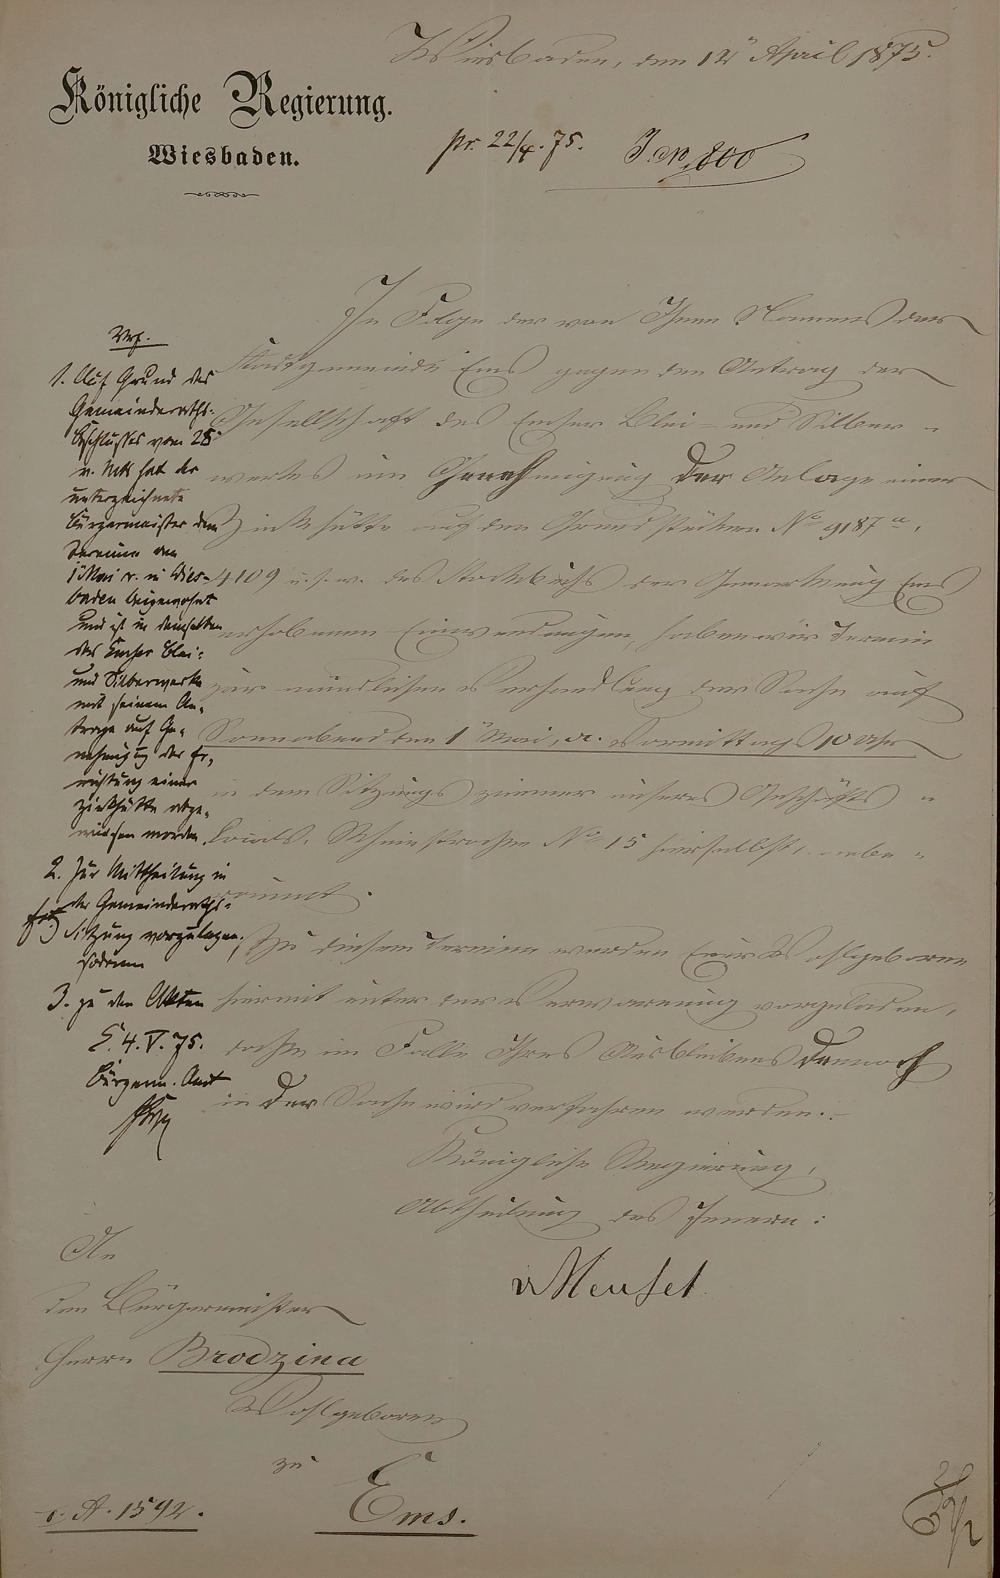 Wiesbaden, den 12ten April 1875.
Königliche Regierung.
Wiesbaden.
pr. 22/4. 75. J. No 800
In Folge der von Ihnen Namens der
Stadtgemeinde Ems gegen den Antrag der
Gesellschaft des Emser Blei- und Silber-
werkes um Genehmigung der Anlage einer
Zinkhütte auf den Grundstücken No 9187 a,
4109 u. s. w. des Stockbuchs der Gemarkung Ems
erhobenen Einwendungen, haben wir Termin
zur mündlichen Verhandlung der Sache auf
Sonnabend den 1ten Mai, Vormittags 10 Uhr
in dem Sitzungszimmer unseres Geschäfts-
lokals, Rheinstraße No 15 hierselbst, anbe-
raumt.
Zu diesem Termine werden Euer Wohlgeboren
hiermit unter der Verwarnung vorgeladen,
daß im Falle Ihres Ausbleibens dennoch
in der Sache wird verfahren werden.
Königliche Regierung,
Abtheilung des Innern:
vMeusel
Vrf.
1. Auf Grund des
Gemeinderaths-
Beschlusses vom 28
v. Mts hat der
unterzeichnete
Bürgermeister dem
Termine am
1 Mai c. in Wies-
baden beigewohnt
und ist in demselben
das Emser Blei-
und Silberwerk
mit seinem An-
trage auf Ge-
nehmigung der Er-
richtung einer
Zinkhütte abge-
wiesen worden.
2. Zur Mittheilung in
der Gemeinderaths-
Sitzung vorzulegen,
sodann
3. zu den Akten
E. 4. V. 75.
Bürgerm. Amt
An
den Bürgermeister
Herrn Brodzina
Wohlgeboren
zu
Ems.
A. 1592.